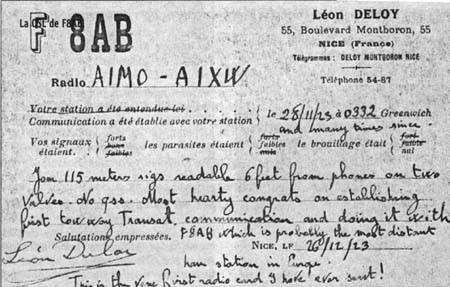 La QSL de F8AB
F 8AB
Léon DELOY
55, Boulevard Montboron, 55
NICE (France)
Télégrammes : DELOY MONTBORON NICE
Téléphone 54-87
Radio A1MO - A1XW
Votre station a été entendue ici . . . . . .
Communication a été établie avec votre station } le 28/11/23 à 0332 Greenwich
and many times since.
Vos signaux étaient. { forts bons faibles } les parasites étaient { forts faibles nuls } le brouillage était { fort faible nul
Your 115 meters sigs readable 6 feet from phones on two
valves. No qss. Most hearty congrats on establishing
first two way Transat. communication and doing it with
Salutations, empressées. F8AB which is probably the most distant
Léon Deloy NICE, LE 26/12/23
ham station in Europe.
This is the very first radio card I have ever sent!